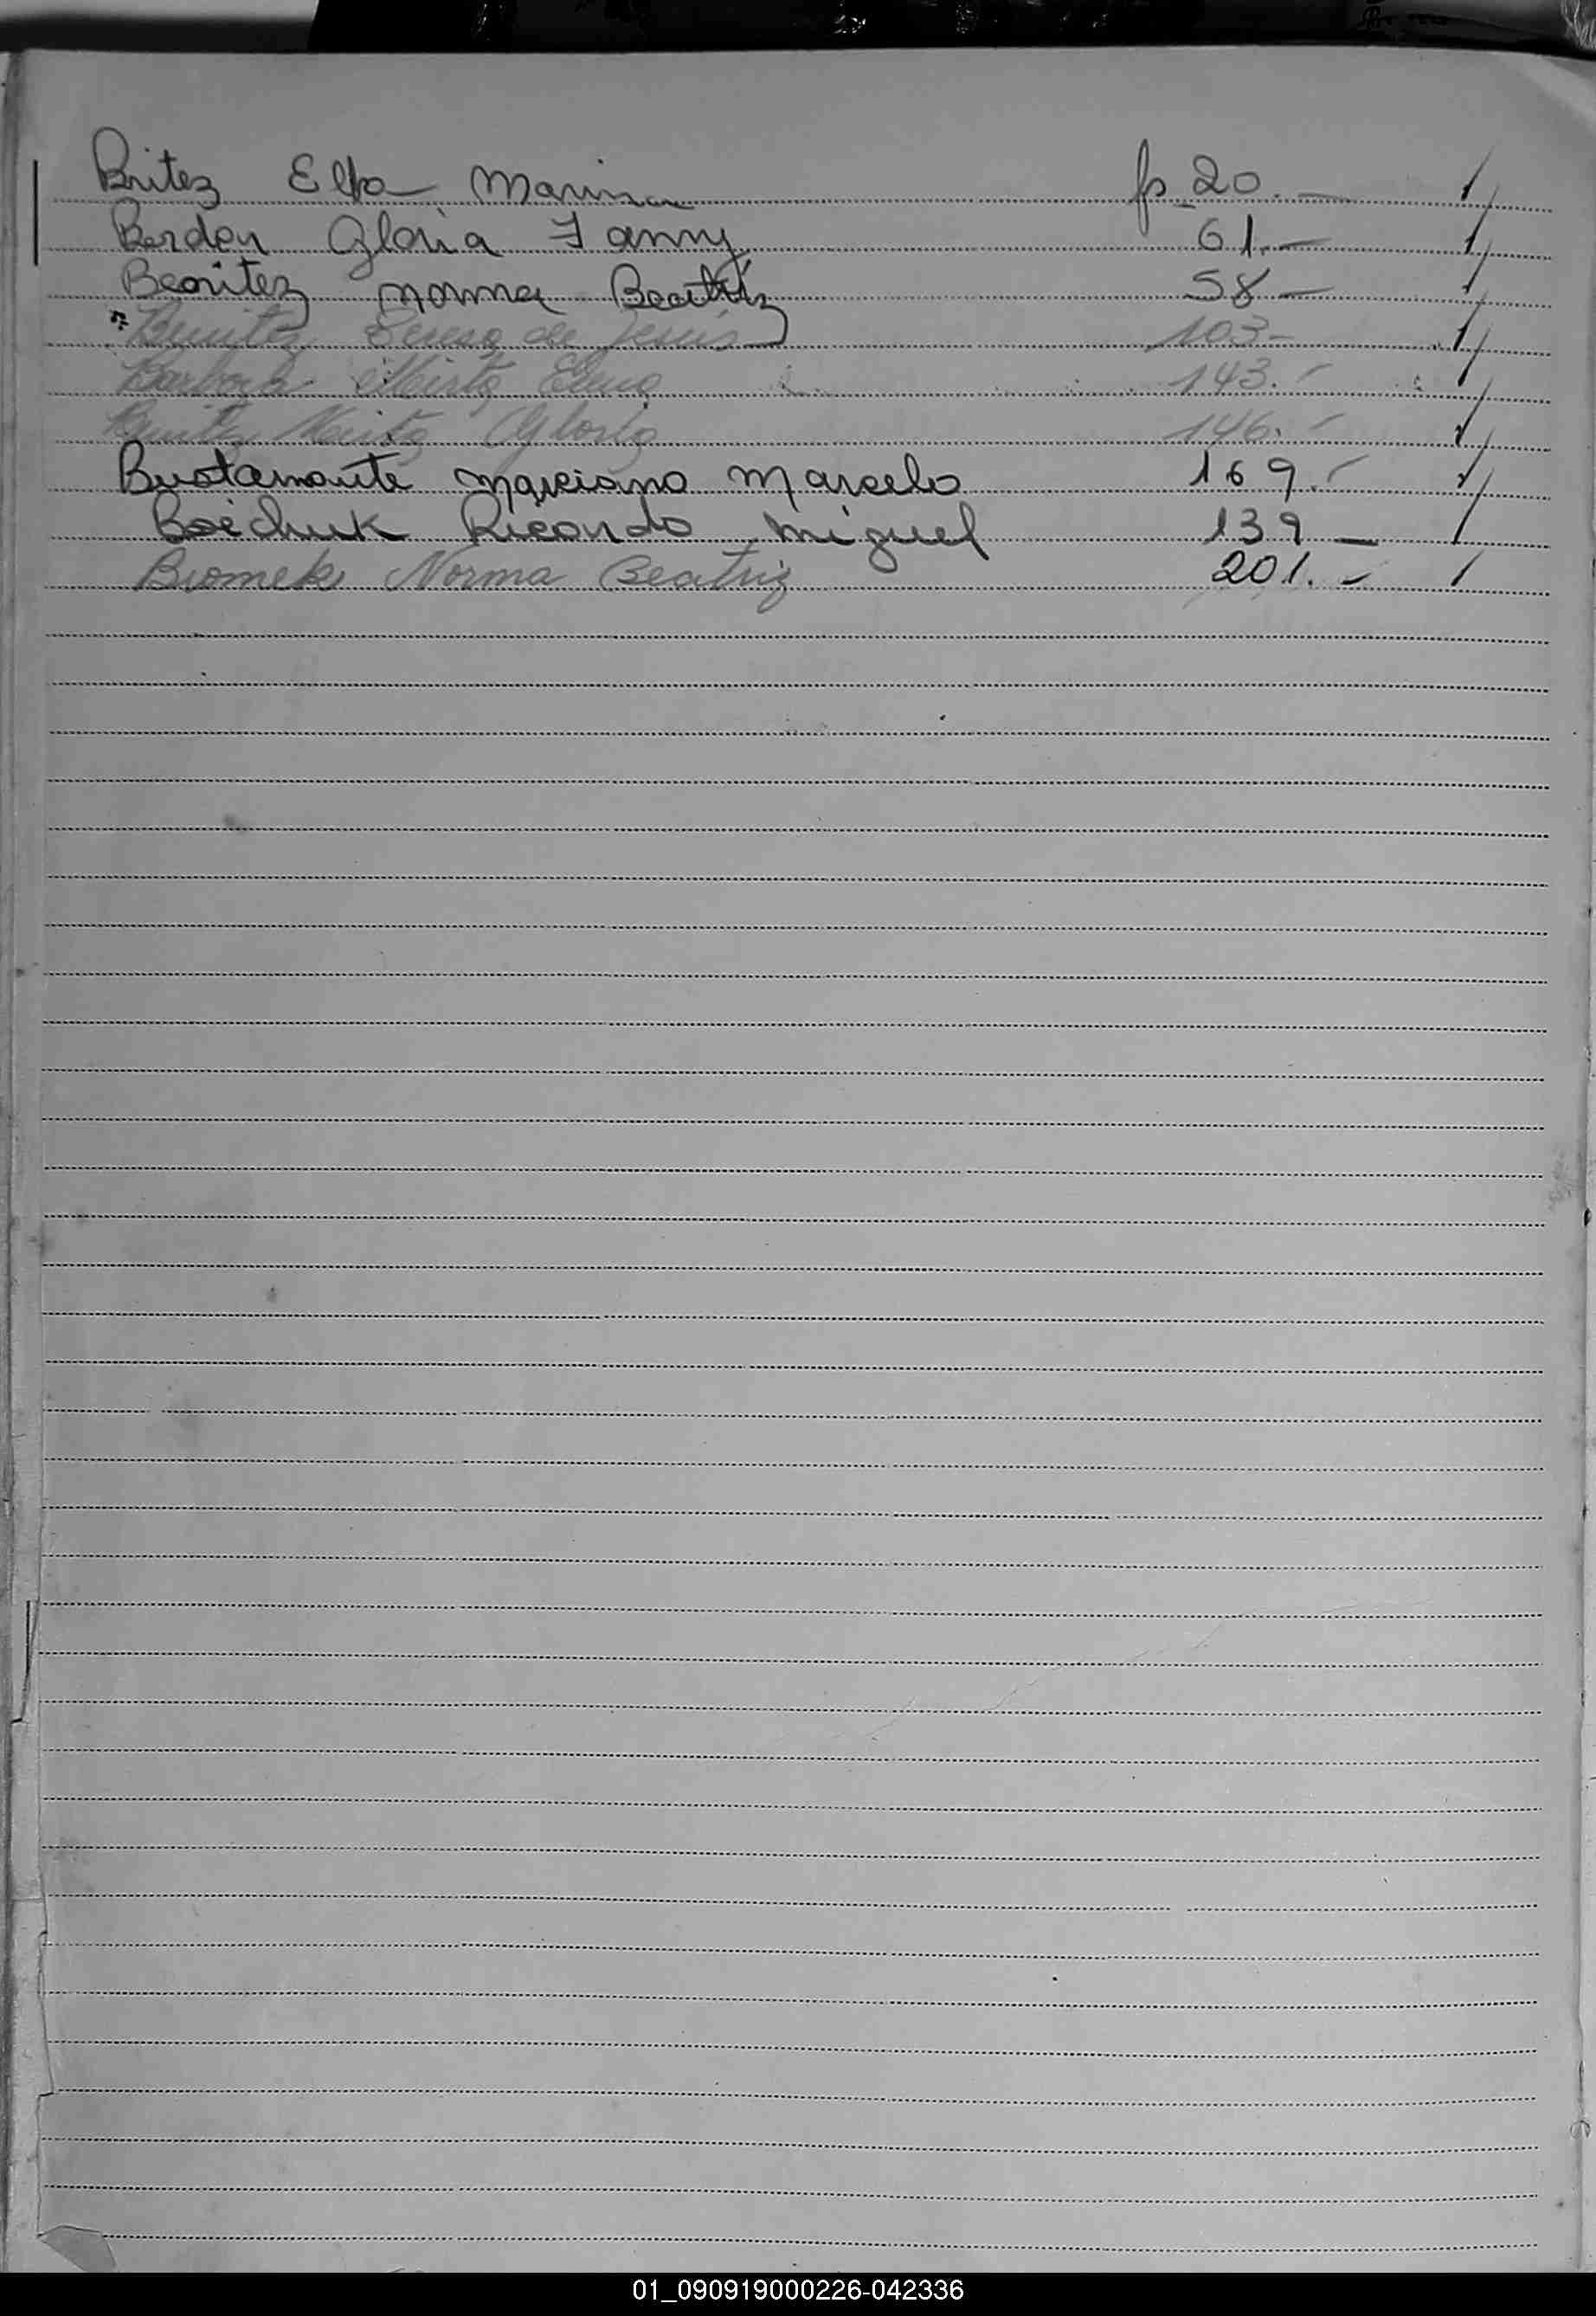 Britez Elba Marina fs 20.-
Berden Gloria Fanny 61.-
Benitez Norma Beatriz 58-
Benitez Teresa de Jesús 103-
Barboza Mirta Elena 143.-
Benitez Gloria 146.-
Bustamante Marciano Marcelo 169.-
Boichuk Ricardo Miguel 139-
Bromek Norma Beatriz 201.-
01_090919000226-042336